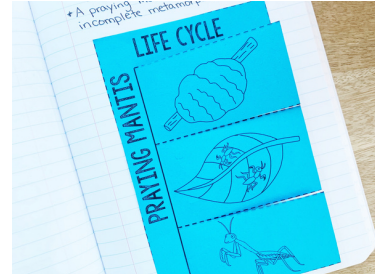 * A praying
incomplete metamorp
LIFE CYCLE
PRAYING MANTIS